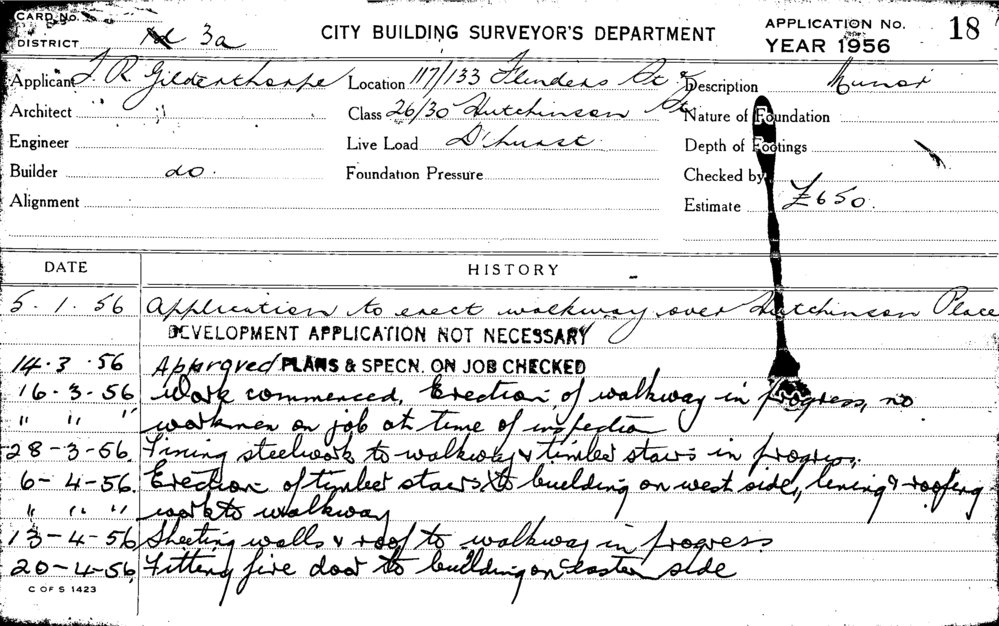 CARD No.
DISTRICT 3a
CITY BUILDING SURVEYOR'S DEPARTMENT
APPLICATION No. 18
YEAR 1956
Applicant J. R. Gilderthorpe Location 117/133 Flinders St & Description Minor
Architect Class 26/30 Hutchinson St Nature of Foundation
Engineer Live Load D'hurst Depth of Footings
Builder do. Foundation Pressure Checked by
Alignment Estimate £650.
DATE HISTORY
5.1.56 Application to erect walkway over Hutchinson Place
DEVELOPMENT APPLICATION NOT NECESSARY
14.3.56 Approved PLANS & SPECN. ON JOB CHECKED
16.3.56 Work commenced, Erection of walkway in progress, no
" " " workmen on job at time of inspection
28-3-56. Fixing steelwork to walkway & timber stairs in progress.
6-4-56. Erection of timber stairs to building on west side, lining & roofing
" " " work to walkway
13-4-56 Sheeting walls & roof to walkway in progress
20-4-56. Fitting fire door to building on eastern side
C OF S 1423